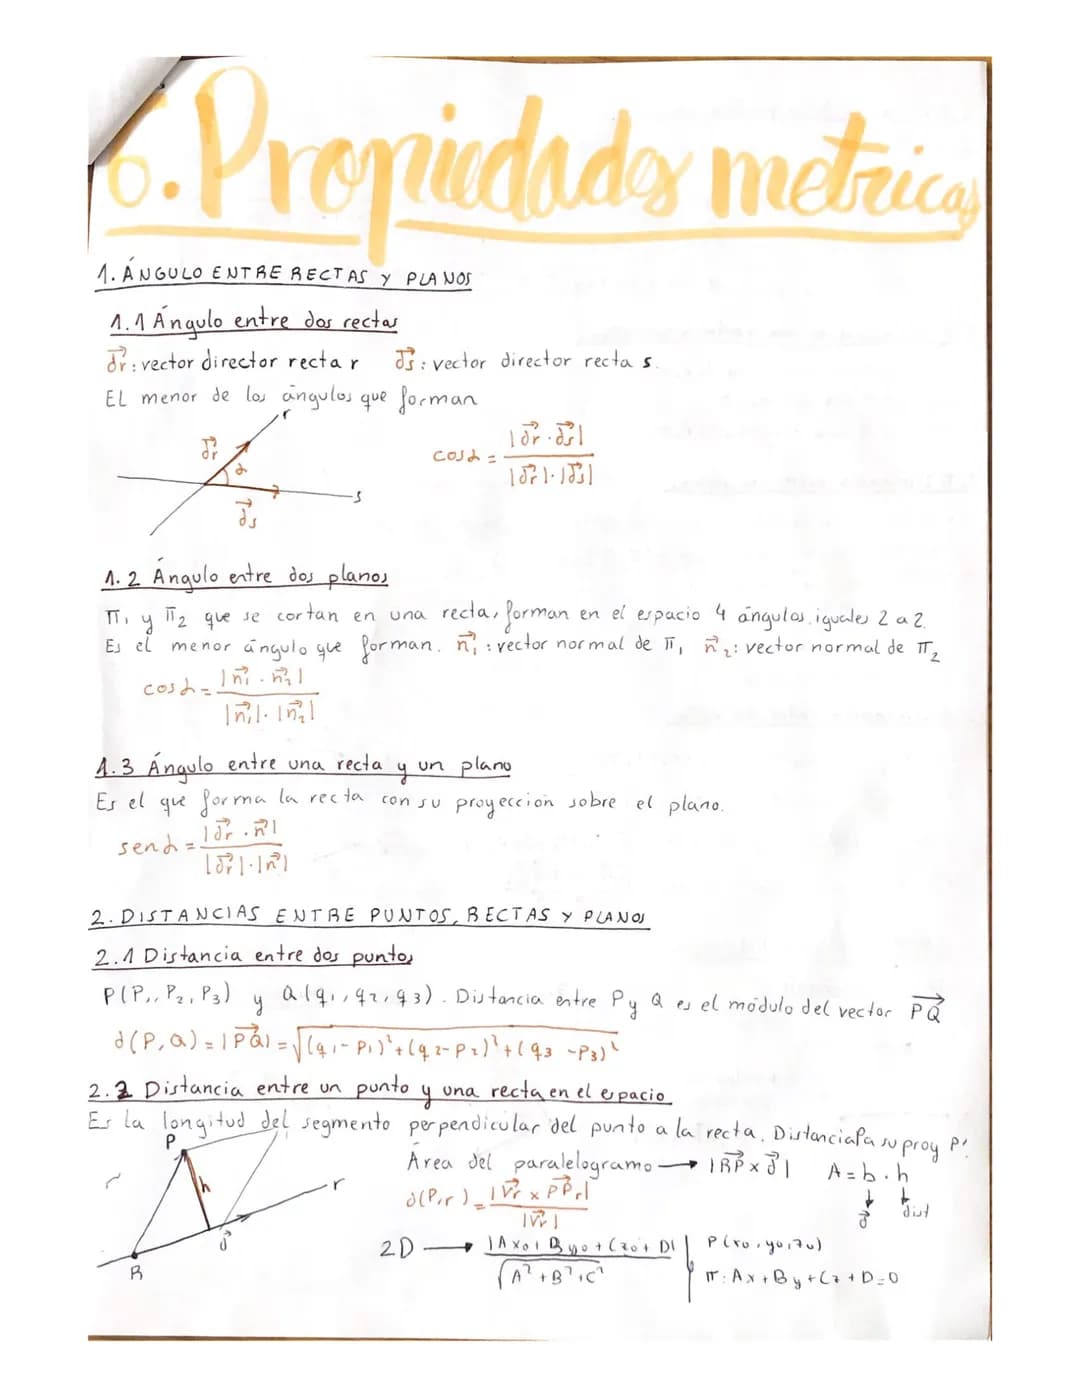 6. Propiedades metricas
1. ÁNGULO ENTRE RECTAS Y PLANOS
1.1 Ángulo entre dos rectas
d⃗r: vector director recta r d⃗s: vector director recta s.
EL menor de los ángulos que forman
r
d⃗r
α
s
d⃗s
cosα = |d⃗r · d⃗s| / |d⃗r| · |d⃗s|
1.2 Ángulo entre dos planos
π₁ y π₂ que se cortan en una recta, forman en el espacio 4 ángulos iguales 2 a 2.
Es el menor ángulo que forman. n⃗₁: vector normal de π₁ n⃗₂: vector normal de π₂
cosα = |n⃗₁ · n⃗₂| / |n⃗₁| · |n⃗₂|
1.3 Ángulo entre una recta y un plano
Es el que forma la recta con su proyección sobre el plano.
senα = |d⃗r · n⃗| / |d⃗r| · |n⃗|
2. DISTANCIAS ENTRE PUNTOS, RECTAS Y PLANOS
2.1 Distancia entre dos puntos
P(P₁, P₂, P₃) y Q(q₁, q₂, q₃). Distancia entre P y Q es el módulo del vector PQ⃗
d(P,Q) = |PQ⃗| = √(q₁-p₁)²+(q₂-p₂)²+(q₃-p₃)²
2.2 Distancia entre un punto y una recta en el espacio
Es la longitud del segmento perpendicular del punto a la recta. Distancia P a su proy P'
P
h
r
d⃗
R
Área del paralelogramo → |RP⃗ x d⃗| A = b · h
d⃗ dist
d(P,r) = |v⃗r x PPr⃗| / |v⃗r|
2D → |Ax₀ + By₀ + Cz₀ + D| / √A²+B²+C² P(x₀, y₀, z₀)
π: Ax + By + Cz + D = 0